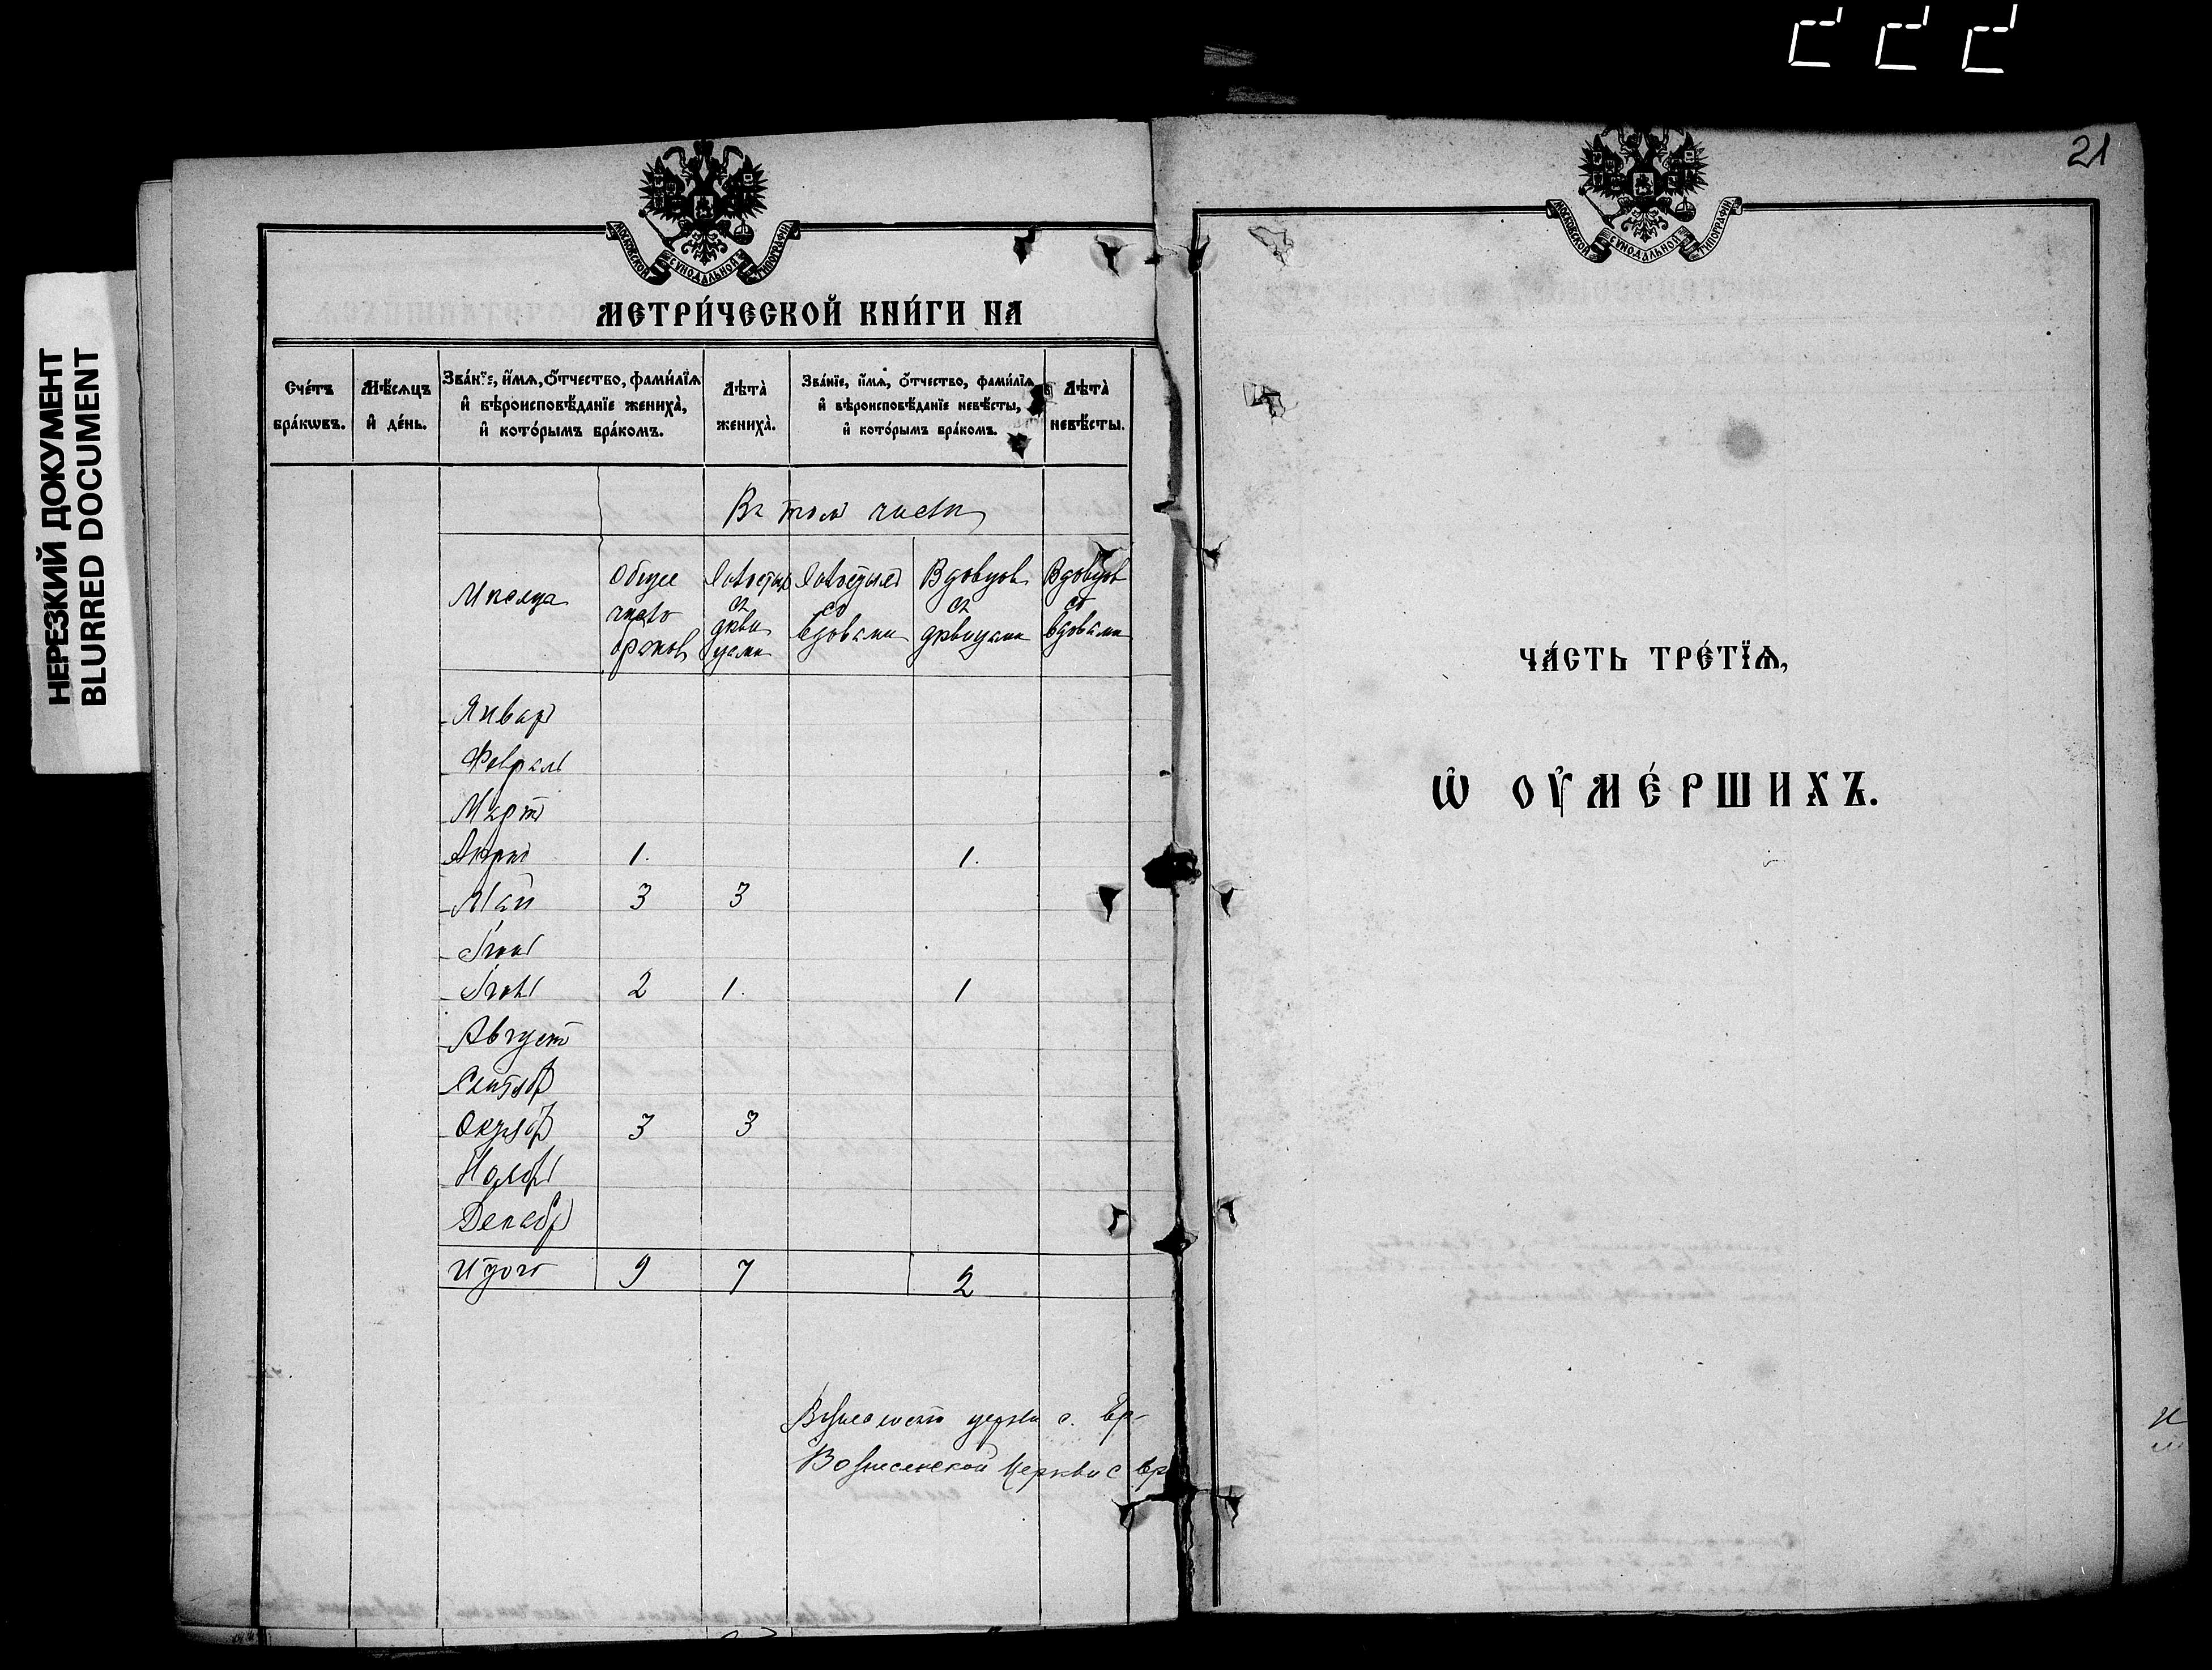 НЕРЕЗКИЙ ДОКУМЕНТ
BLURRED DOCUMENT
МОСКОВСКОЙ СѴНОДАЛЬНОЙ ТИПОГРАФІИ
МЕТРИ́ЧЕСКОЙ КНИ́ГИ НА
Сче́тъ бра́кѡвъ.
Мѣ́сѧцъ и҆ де́нь.
Зва́нїе, и҆́мѧ, ѻ҆́тчество, фами́лїѧ и҆ вѣроисповѣ́данїе жениха̀, и҆ кото́рымъ бра́комъ.
Лѣта̀ жениха̀.
Зва́нїе, и҆́мѧ, ѻ҆́тчество, фами́лїѧ и҆ вѣроисповѣ́данїе невѣ́сты, и҆ кото́рымъ бра́комъ.
Лѣта̀ невѣ́сты.
Въ том числѣ
Мѣсяца
Общее число браков
Холостых съ дѣвицами
Холостых со вдовами
Вдовцов съ дѣвицами
Вдовцов со вдовами
Январь
Февраль
Март
Апрѣль 1. 1.
Май 3 3
Іюнь
Іюль 2 1. 1
Август
Сентябр
Октябр 3 3
Ноябрь
Декабр
Итого 9 7 2
Вознесенской церкви с. Вр-
Вознесенской Церкви с Вр
21
МОСКОВСКОЙ СѴНОДАЛЬНОЙ ТИПОГРАФІИ
ЧА́СТЬ ТРЕ́ТЇѦ,
Ѡ҆ ОУ҆МЕ́РШИХЪ.